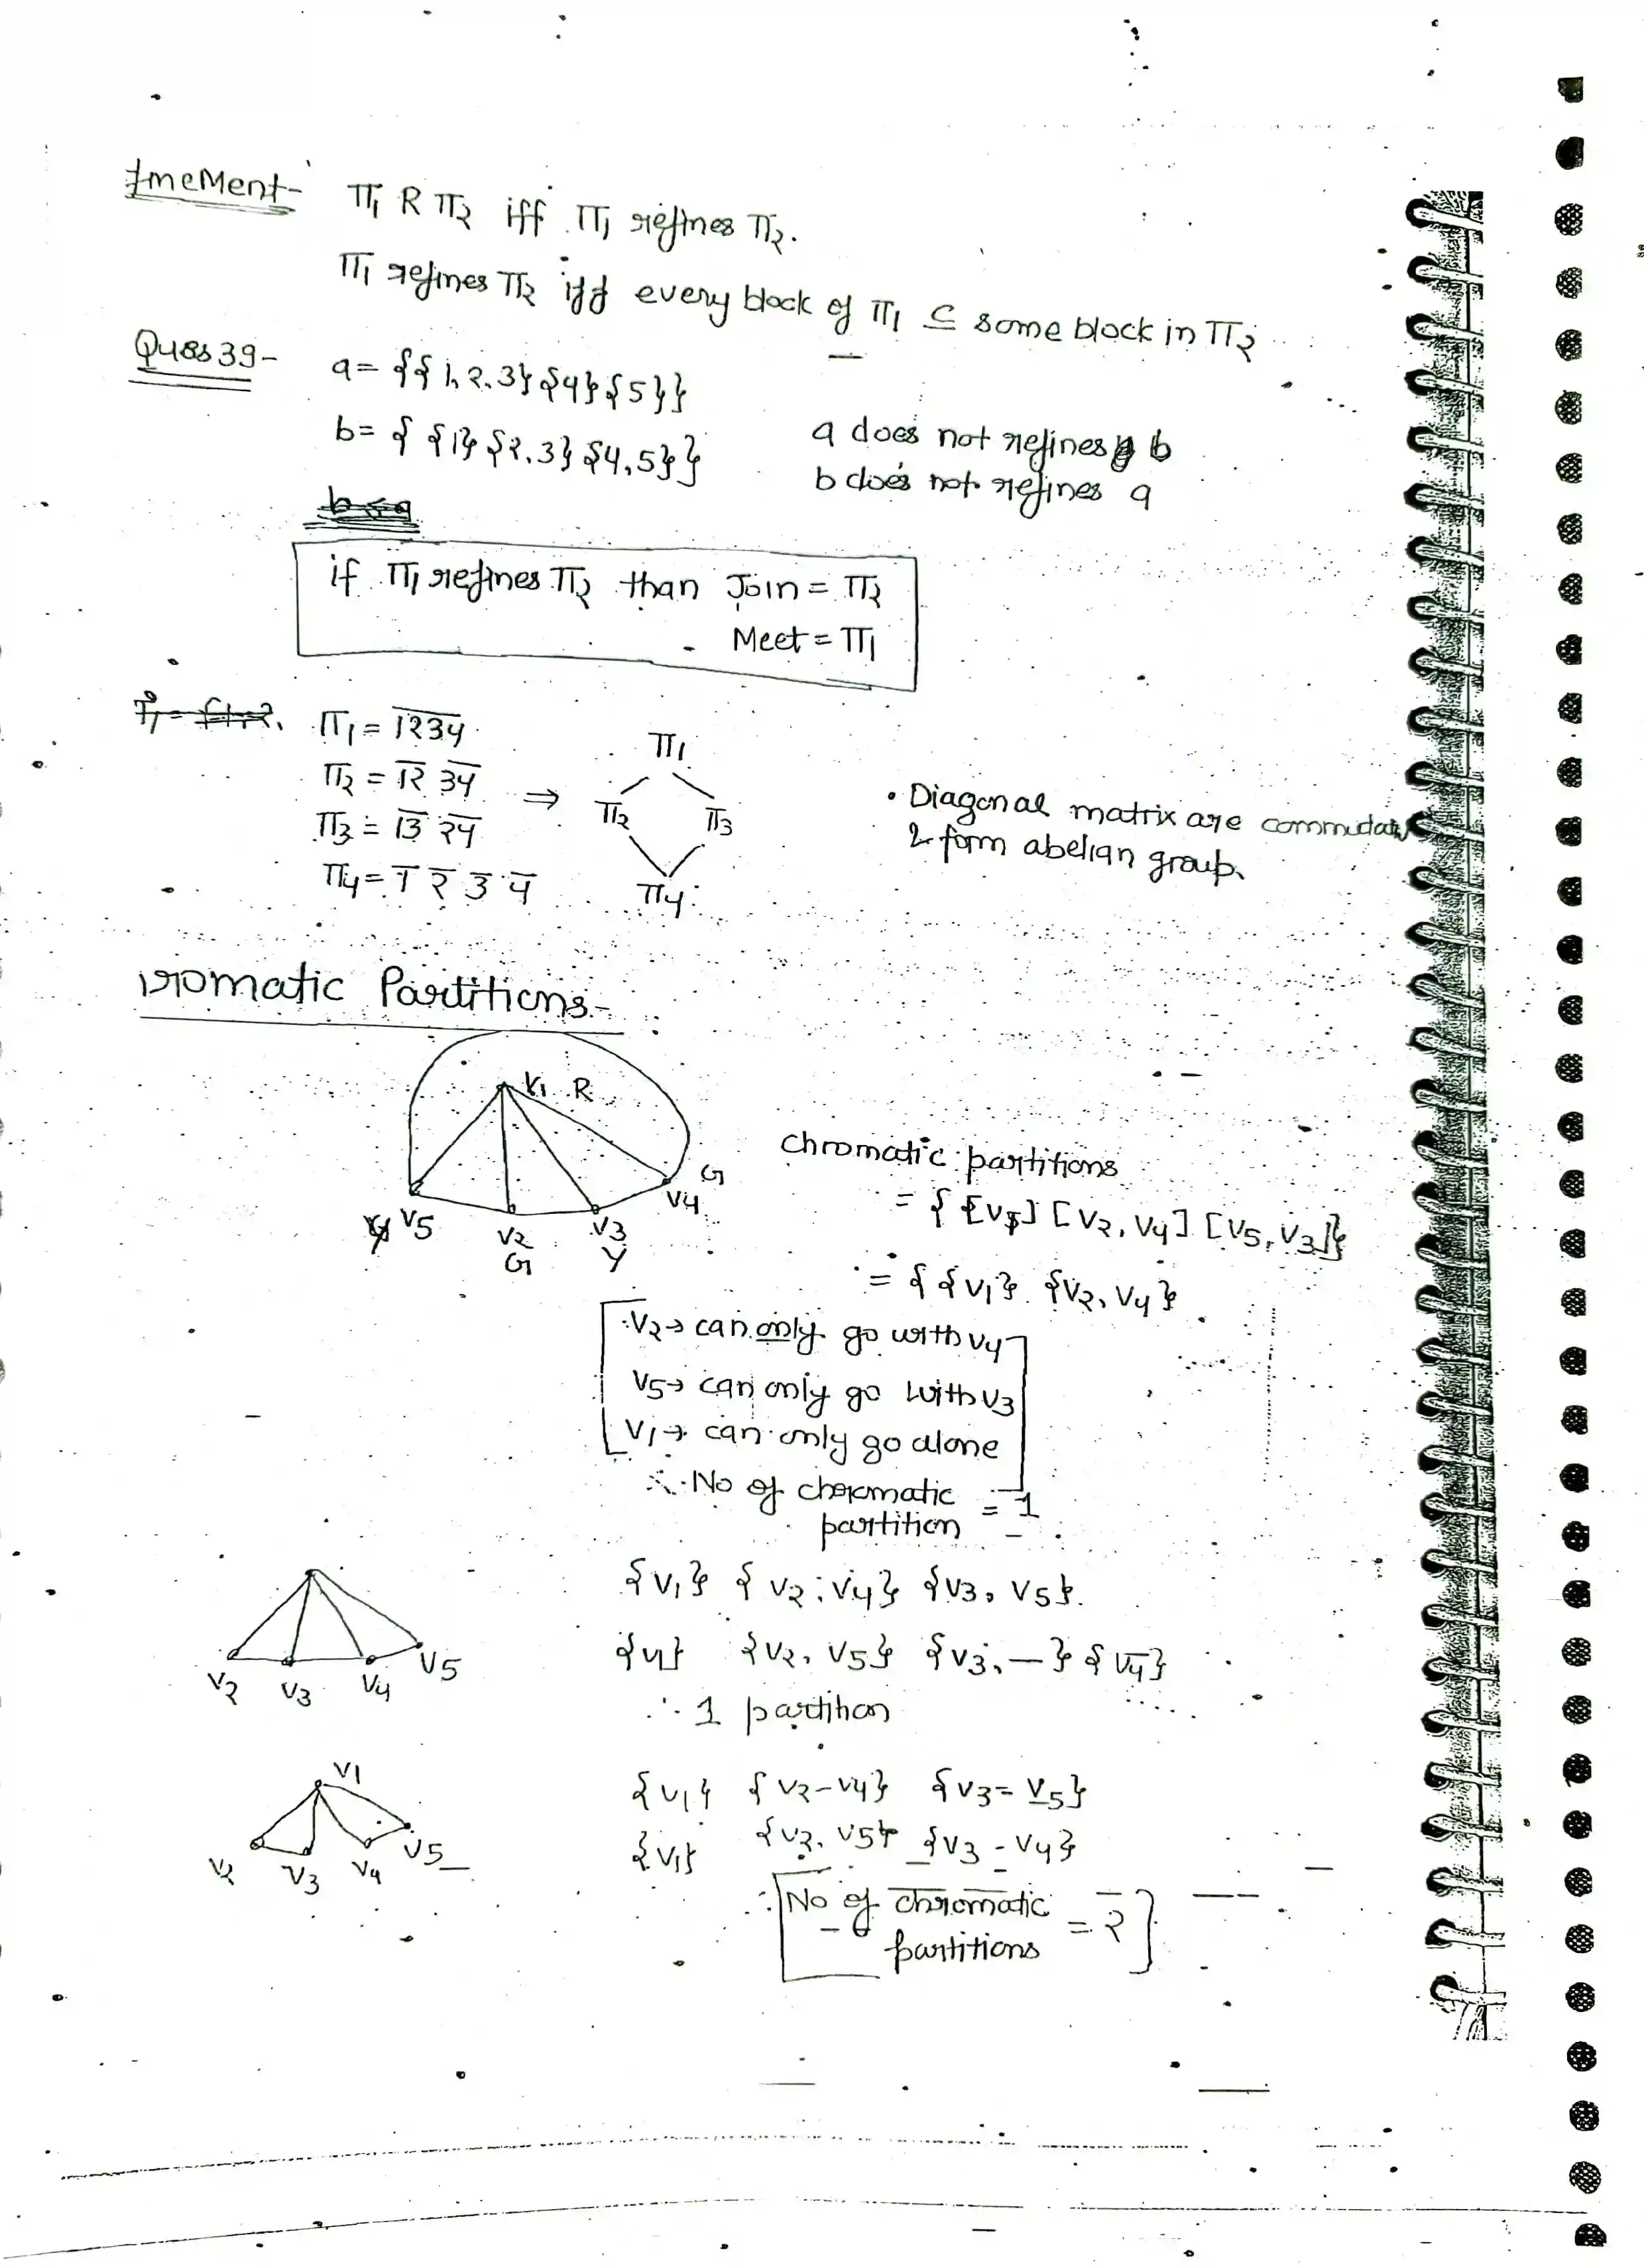 fmeMent- π1 R π2 iff π1 refines π2.
π1 refines π2 iff every block of π1 ⊆ some block in π2
Ques 39- a= {{1,2,3}{4}{5}}
b= {{1}{2,3}{4,5}}
a does not refines b
b does not refines a
if π1 refines π2 than Join = π2
Meet = π1
π1 = 1234
π2 = 12 34
π3 = 13 24
π4 = 1 2 3 4
⇒
π1
π2 π3
π4
• Diagonal matrix are commutativ
& form abelian group.
romatic Partitions-
V1 R
G
V4
V5
V2
G
V3
Y
Chromatic partitions
= { [V1] [V2, V4] [V5, V3]}
= { {V1} {V2, V4}
V2→ can only go with V4
V5→ can only go with V3
V1→ can only go alone
∴ No of choromatic partition = 1
{V1} {V2, V4} {V3, V5}.
{V1} {V2, V5} {V3, —} {V4}
∴ 1 partition
V2 V3 V4 V5
V1
V2 V3 V4 V5
{V1} {V2-V4} {V3=V5}
{V1} {V2, V5} {V3-V4}
∴ No of chromatic partitions = 2